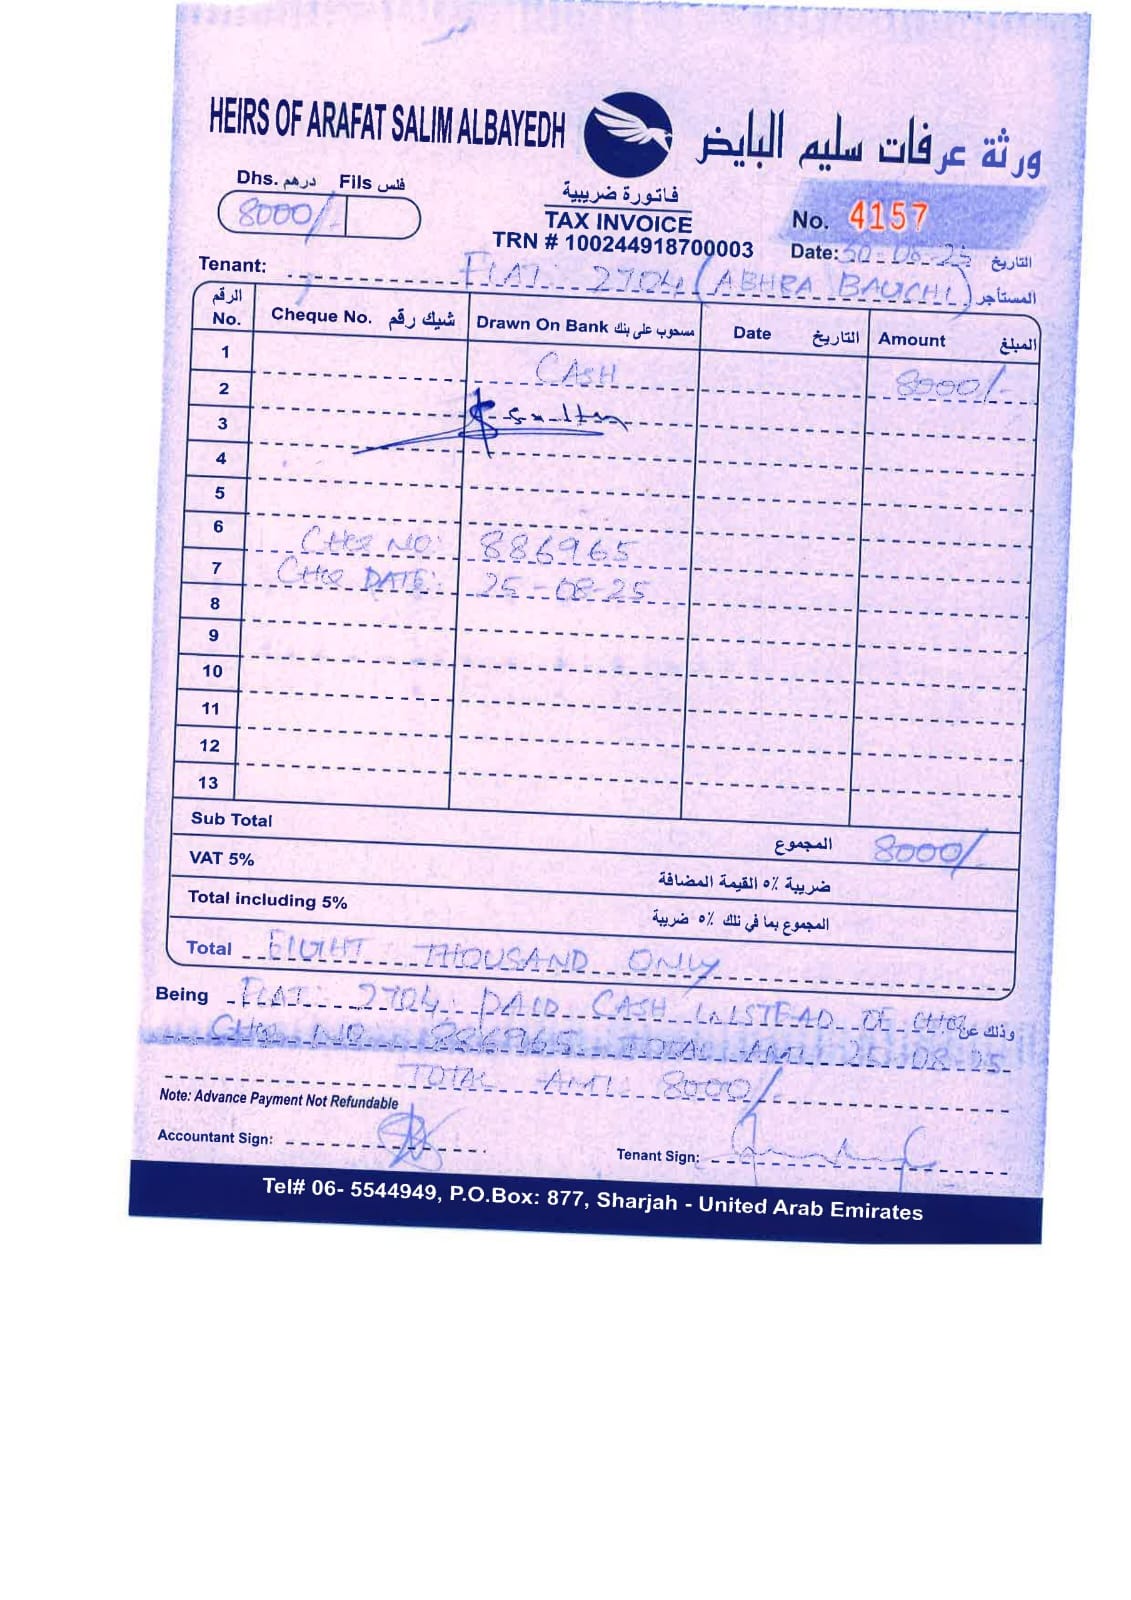 HEIRS OF ARAFAT SALIM ALBAYEDH ورثة عرفات سليم البايض
Dhs. درهم Fils فلس
8000/-
فاتورة ضريبية
TAX INVOICE
TRN # 100244918700003
No. 4157
Date: التاريخ
Tenant: FLAT: 2704 (ABHRA BAUCHI) المستأجر
الرقم No. Cheque No. شيك رقم Drawn On Bank مسحوب على بنك Date التاريخ Amount المبلغ
1 CASH 8000/-
2
3
4
5
6 CHQ NO: 886965
7 CHQ DATE: 25-08-25
8
9
10
11
12
13
Sub Total المجموع 8000/-
VAT 5% ضريبة ٥٪ القيمة المضافة
Total including 5% المجموع بما في ذلك ٥٪ ضريبة
Total EIGHT THOUSAND ONLY
Being FLAT: 2704 PAID CASH INSTEAD OF CHQ وذلك عن
CHQ NO 886965 TOTAL AMT 25-08-25
TOTAL AMT: 8000/-
Note: Advance Payment Not Refundable
Accountant Sign:
Tenant Sign:
Tel# 06- 5544949, P.O.Box: 877, Sharjah - United Arab Emirates